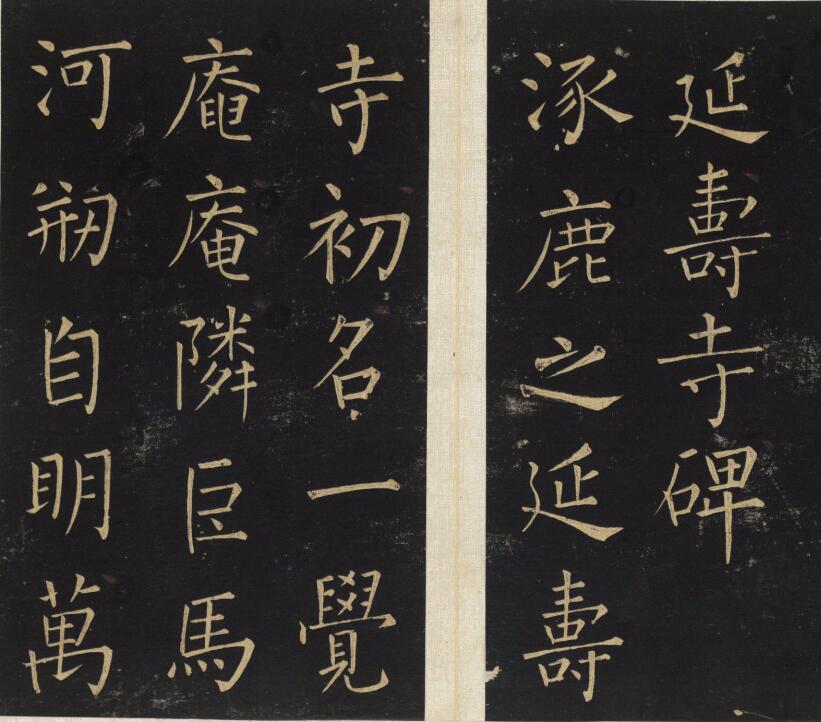 延壽寺碑
涿鹿之延壽
寺初名一覺
庵庵隣巨馬
河剏自明萬